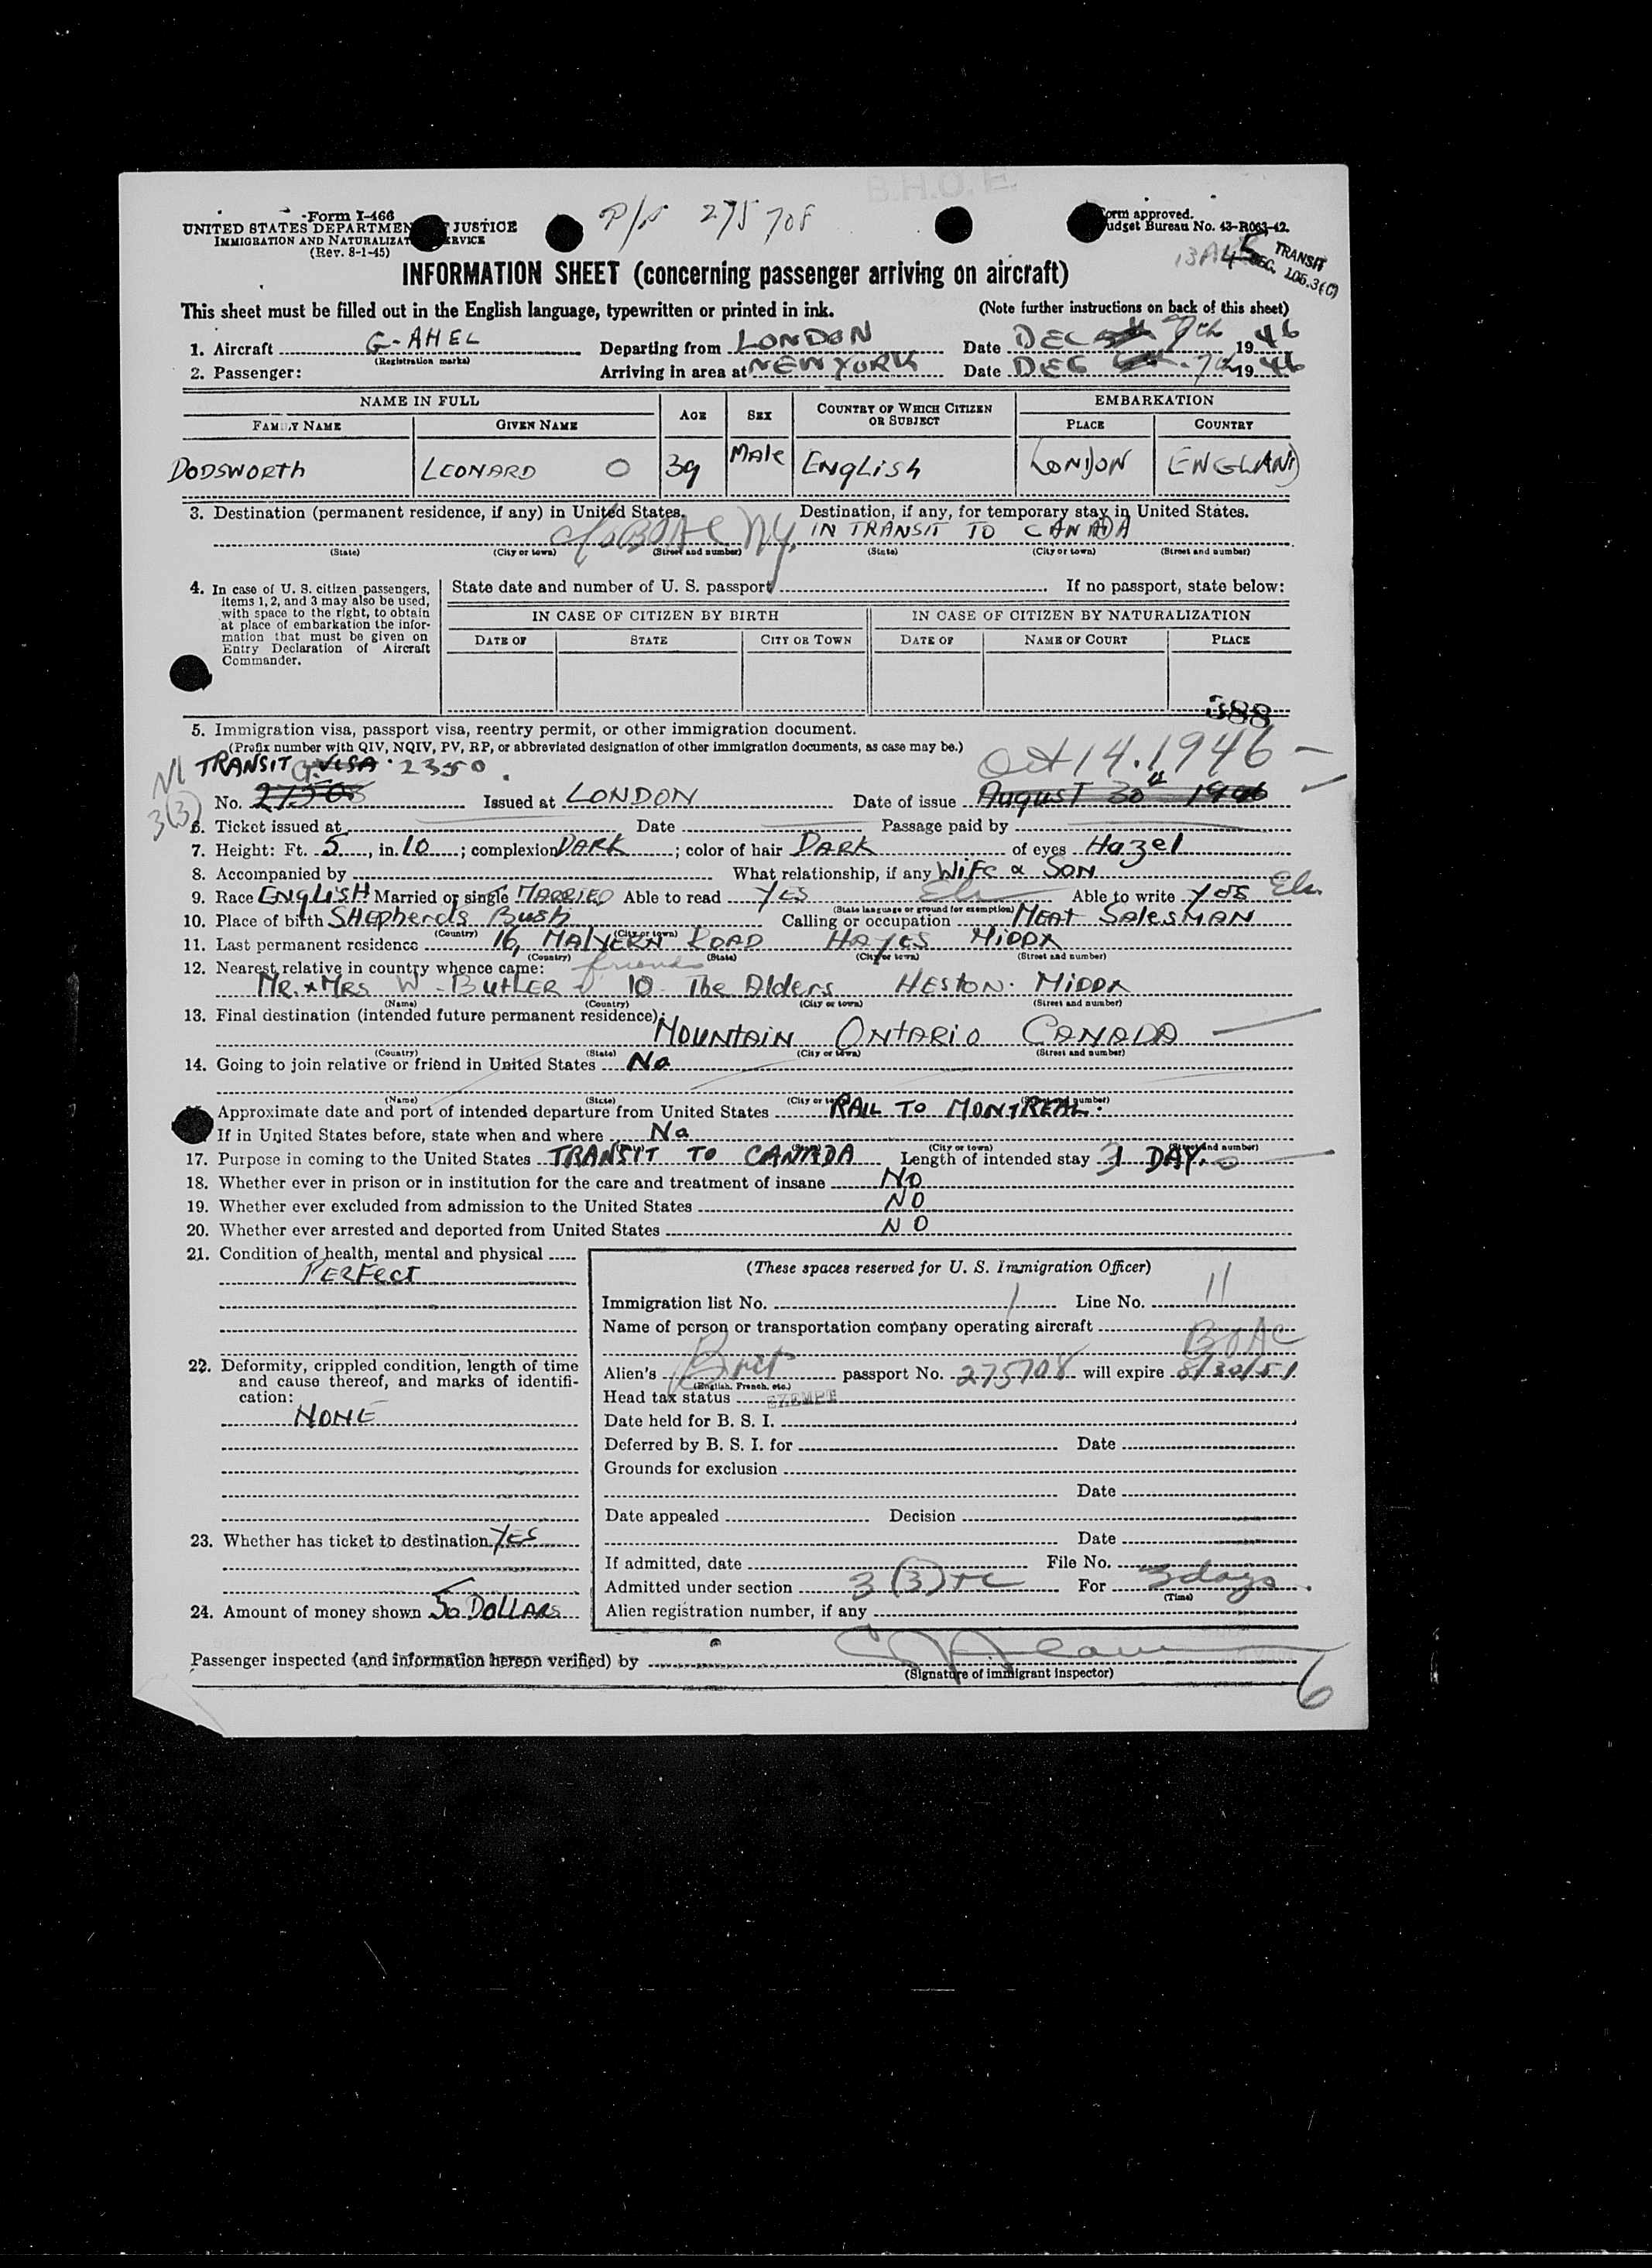 B.H.O.E.
Form I-466
UNITED STATES DEPARTMEN JUSTICE
IMMIGRATION AND NATURALIZAT ERVICE
(Rev. 8-1-45)
P/P 275708
orm approved.
udget Bureau No. 43-R063-42.
TRANSIT
SEC. 106.3(C)
INFORMATION SHEET (concerning passenger arriving on aircraft)
This sheet must be filled out in the English language, typewritten or printed in ink. (Note further instructions on back of this sheet)
1. Aircraft G-AHEL Departing from LONDON Date DEC 7th 1946
(Registration marks)
2. Passenger: Arriving in area at NEW YORK Date DEC 7th 1946
NAME IN FULL AGE SEX COUNTRY OF WHICH CITIZEN OR SUBJECT EMBARKATION
FAMILY NAME GIVEN NAME PLACE COUNTRY
DODSWORTH LEONARD O 39 Male ENGLISH LONDON ENGLAND
3. Destination (permanent residence, if any) in United States. Destination, if any, for temporary stay in United States.
c/o BOAC NY. IN TRANSIT TO CANADA
(State) (City or town) (Street and number) (State) (City or town) (Street and number)
4. In case of U. S. citizen passengers, items 1, 2, and 3 may also be used, with space to the right, to obtain at place of embarkation the information that must be given on Entry Declaration of Aircraft Commander.
State date and number of U. S. passport If no passport, state below:
IN CASE OF CITIZEN BY BIRTH IN CASE OF CITIZEN BY NATURALIZATION
DATE OF STATE CITY OR TOWN DATE OF NAME OF COURT PLACE
388
5. Immigration visa, passport visa, reentry permit, or other immigration document.
(Prefix number with QIV, NQIV, PV, RP, or abbreviated designation of other immigration documents, as case may be.)
TRANSIT VISA 2350 Oct 14. 1946
3(3)
No. 27508 Issued at LONDON Date of issue August 30th 1946
6. Ticket issued at Date Passage paid by
7. Height: Ft. 5, in. 10; complexion DARK; color of hair DARK of eyes Hazel
8. Accompanied by What relationship, if any WIFE & SON
9. Race ENGLISH Married or single MARRIED Able to read YES Able to write YES
(State language or ground for exemption)
10. Place of birth SHepherds Bush Calling or occupation MEAT SalesMAN
(Country) (City or town)
11. Last permanent residence 16, MALVERN ROAD HAYES MIDDX
(Country) (State) (City or town) (Street and number)
12. Nearest relative in country whence came: friends
MR. & MRS W. BUTLER 10 The Alders HESTON. MIDDX
(Name) (Country) (City or town) (Street and number)
13. Final destination (intended future permanent residence):
MOUNTAIN ONTARIO CANADA
(Country) (State) (City or town) (Street and number)
14. Going to join relative or friend in United States No
(Name) (State) (City or town) (Street and number)
Approximate date and port of intended departure from United States RAIL TO MONTREAL.
If in United States before, state when and where No
(City or town) (Street and number)
17. Purpose in coming to the United States TRANSIT TO CANADA Length of intended stay 1 DAY.
18. Whether ever in prison or in institution for the care and treatment of insane NO
19. Whether ever excluded from admission to the United States NO
20. Whether ever arrested and deported from United States NO
21. Condition of health, mental and physical
PERFECT
(These spaces reserved for U. S. Immigration Officer)
Immigration list No. 1 Line No. 11
Name of person or transportation company operating aircraft
BOAC
22. Deformity, crippled condition, length of time and cause thereof, and marks of identification:
NONE
Alien's Brit passport No. 275708 will expire 8/30/51
(English, French, etc.)
Head tax status EXEMPT
Date held for B. S. I.
Deferred by B. S. I. for Date
Grounds for exclusion
Date
Date appealed Decision
23. Whether has ticket to destination YES
Date
If admitted, date File No.
Admitted under section 3(3) TC For 3 days.
(Time)
24. Amount of money shown 50 DOLLARS
Alien registration number, if any
Passenger inspected (and information hereon verified) by
(Signature of immigrant inspector)
6